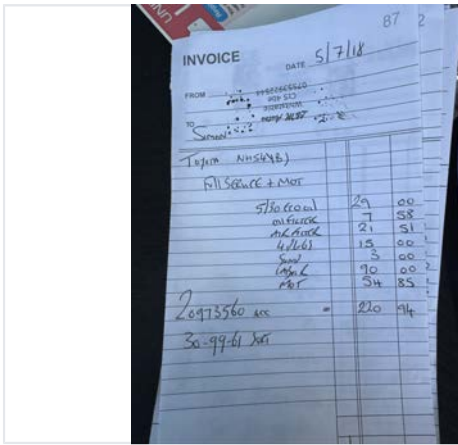 87 2
INVOICE
DATE 5/7/18
FROM
TO
Simon
Toyota
Full Service + MOT
5/30 Eco oil 29 00
oil Filter 7 58
Air Filter 21 51
15 00
Sund 3 00
Labour 90 00
MOT 54 85
20973560 acc = 220 94
30-99-61 Sort